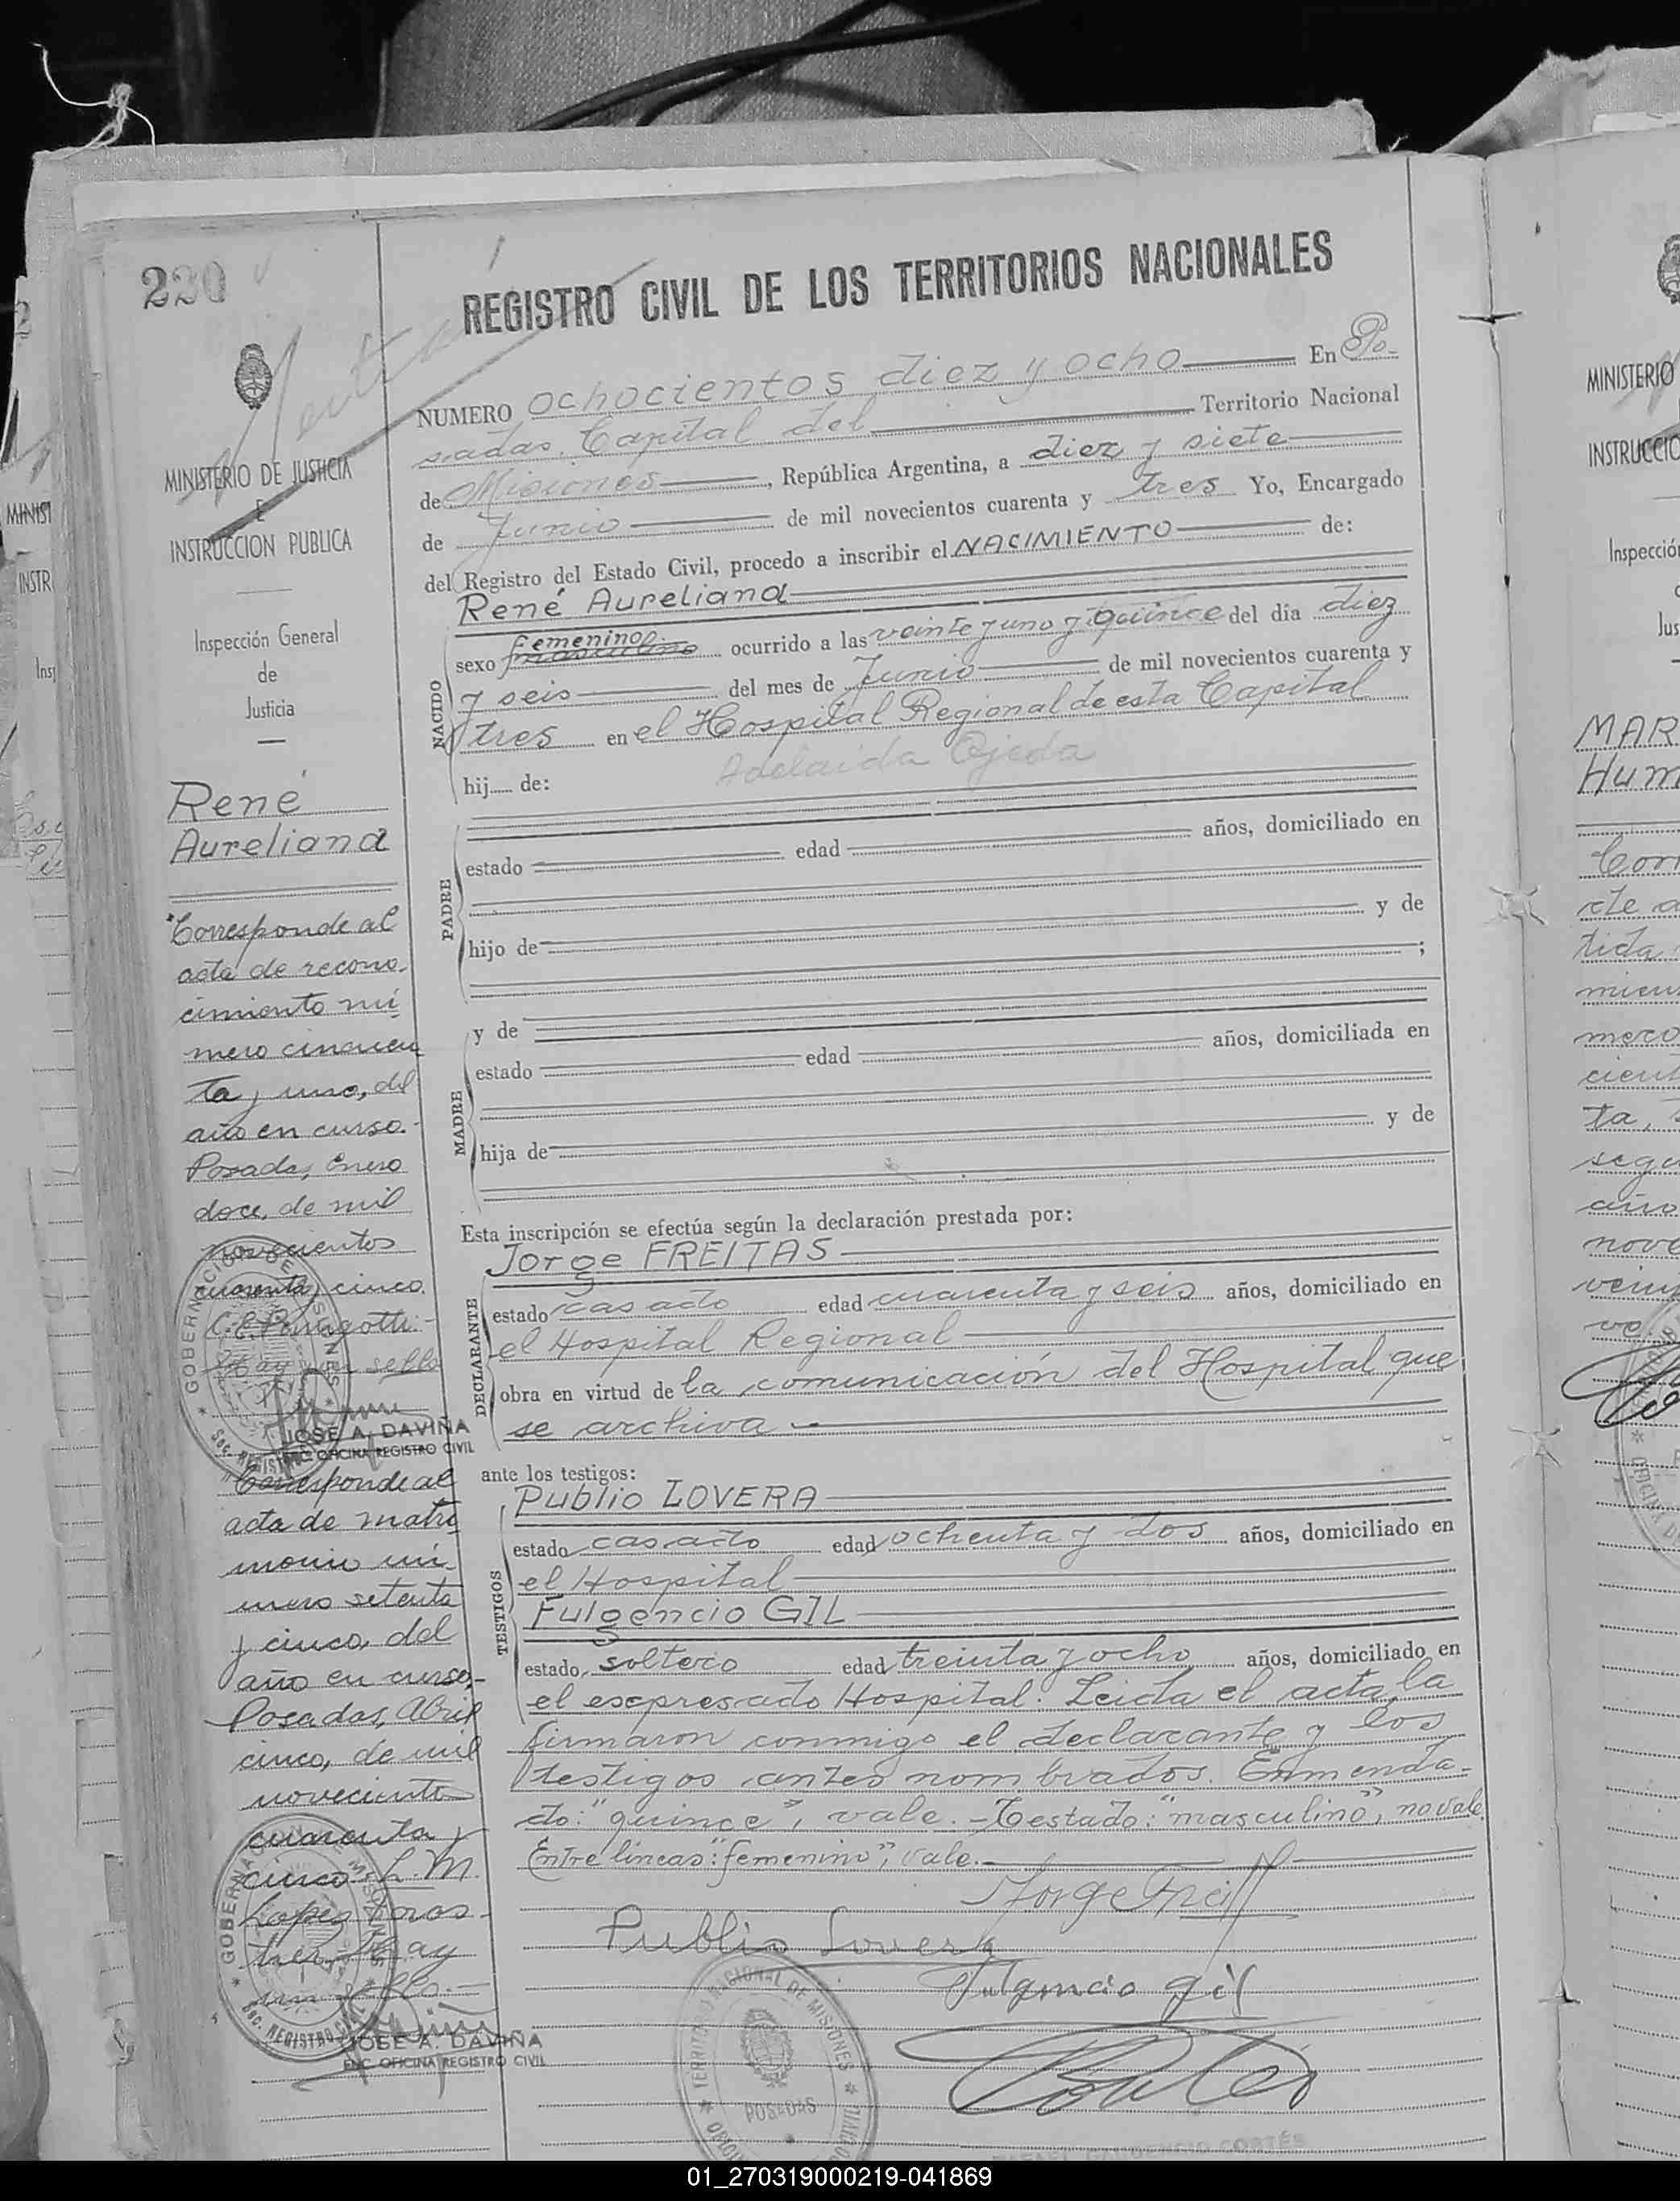 220
REGISTRO CIVIL DE LOS TERRITORIOS NACIONALES
MINISTERIO DE JUSTICIA
E
INSTRUCCION PUBLICA
Inspección General
de
Justicia
René
Aureliana
"Corresponde al
acta de recono-
cimiento nú
mero cincuen
ta y uno, del
año en curso.-
Posadas, Enero
doce, de mil
novecientos
cuarenta y cinco.
Hay un sello
JOSE A. DAVIÑA
ENC. OFICINA REGISTRO CIVIL
"Corresponde al
acta de matri
monio nú
mero setenta
y cinco, del
año en curso.-
Posadas, Abril
cinco, de mil
novecientos
cuarenta y
cinco. L. M.
Lopez
Hay
un sello.-
JOSE A. DAVIÑA
ENC. OFICINA REGISTRO CIVIL
NUMERO ochocientos diez y ocho En Po-
sadas, Capital del Territorio Nacional
de Misiones, República Argentina, a diez y siete
de Junio de mil novecientos cuarenta y tres Yo, Encargado
del Registro del Estado Civil, procedo a inscribir el NACIMIENTO de:
NACIDO
René Aureliana
femenino
sexo masculino ocurrido a las veinte y uno y quince del día diez
y seis del mes de Junio de mil novecientos cuarenta y
tres en el Hospital Regional de esta Capital
hij de: Adelaida Ojeda
PADRE
estado edad años, domiciliado en
hijo de y de
;
MADRE
y de
estado edad años, domiciliada en
hija de y de
Esta inscripción se efectúa según la declaración prestada por:
DECLARANTE
Jorge FREITAS
estado casado edad cuarenta y seis años, domiciliado en
el Hospital Regional
obra en virtud de la comunicación del Hospital que
se archiva.-
ante los testigos:
TESTIGOS
Publio LOVERA
estado casado edad ochenta y dos años, domiciliado en
el Hospital
Fulgencio GIL
estado soltero edad treinta y ocho años, domiciliado en
el esepresado Hospital. Leida el acta, la
firmaron conmigo el declarante y los
testigos antes nombrados. Enmenda-
do: "quince", vale.-Testado: "masculino", no vale.
Entre lineas: "femenino", vale.-
Publio Lovera
Fulgencio Gil
POSADAS
MINISTERIO
INSTRUCCIO
Inspecció
Jus
MAR
Hum
01_270319000219-041869